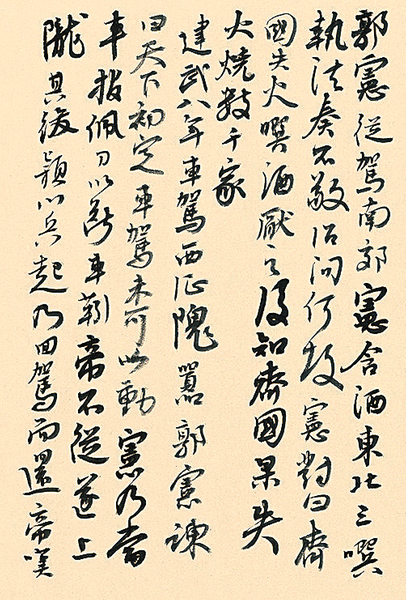 郭憲從駕南郊憲含酒東北三噀
執法奏不敬詔問何故憲對曰齊
國失火噀酒厭之後知齊國果失
火燒數千家
建武八年車駕西征隗囂郭憲諫
曰天下初定車駕未可以動憲乃當
車拔佩刀以斷車靷帝不從遂上
隴其後潁川兵起乃回駕而還帝嘆